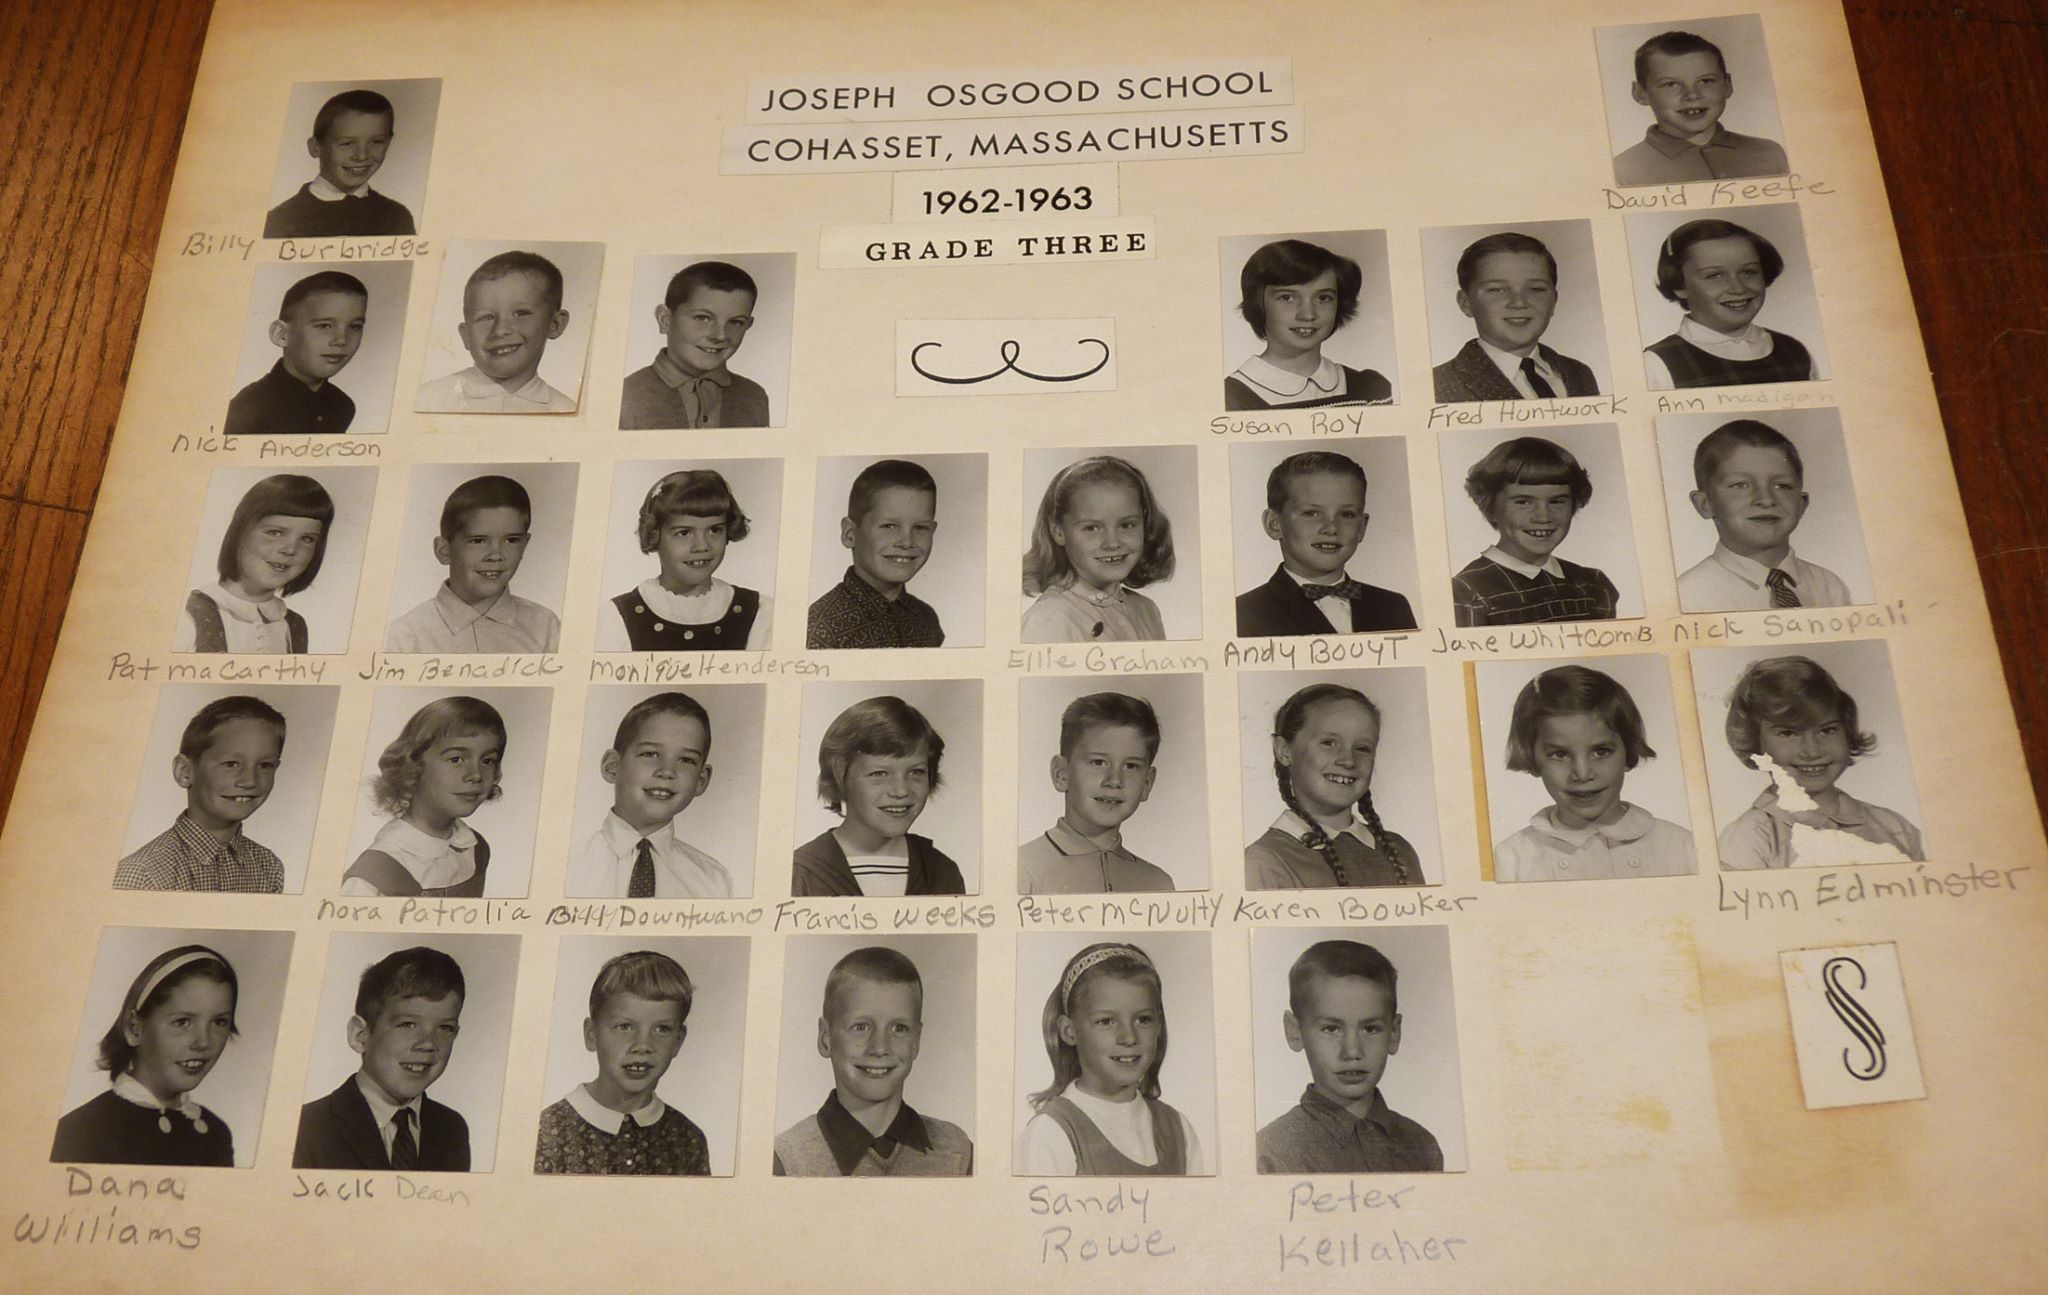 JOSEPH OSGOOD SCHOOL
COHASSET, MASSACHUSETTS
1962-1963
GRADE THREE
David Keefe
Billy Burbridge
Susan Roy Fred Huntwork Ann madigan
nick Anderson
Pat macarthy Jim Benadick Monique Henderson Ellie Graham Andy BouyT Jane WhitcomB nick Sanopali
Lynn Edminster
nora Patrolia Billy Downtwano Francis weeks Peter McNulty Karen Bowker
Dana
Williams
Jack Dean
Sandy
Rowe
Peter
Kellaher